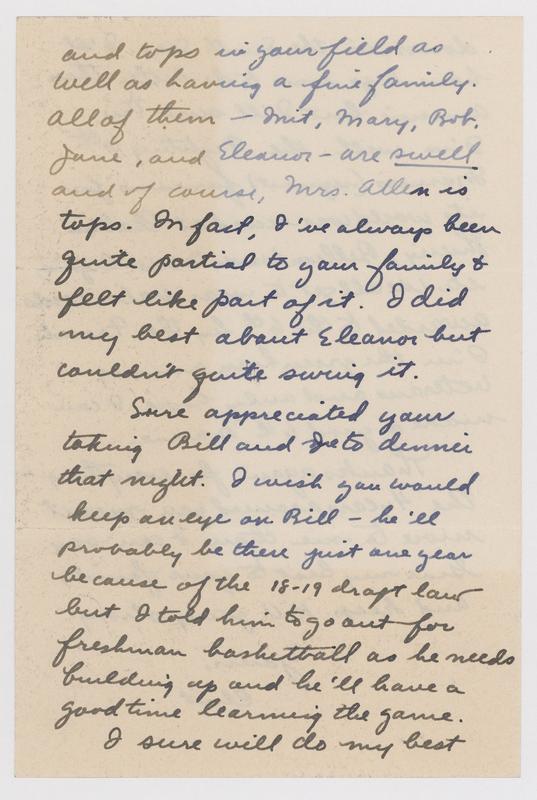 and tops in your field as
well as having a fine family.
All of them – Mit, Mary, Bob,
Jane, and Eleanor – are swell
and of course, Mrs. Allen is
tops. In fact, I've always been
quite partial to your family &
felt like part of it. I did
my best about Eleanor but
couldn't quite swing it.
Sure appreciated your
taking Bill and Je to dinner
that night. I wish you would
keep an eye on Bill – he'll
probably be there just one year
because of the 18-19 draft law
but I told him to go out for
freshman basketball as he needs
building up and he'll have a
good time learning the game.
I sure will do my best